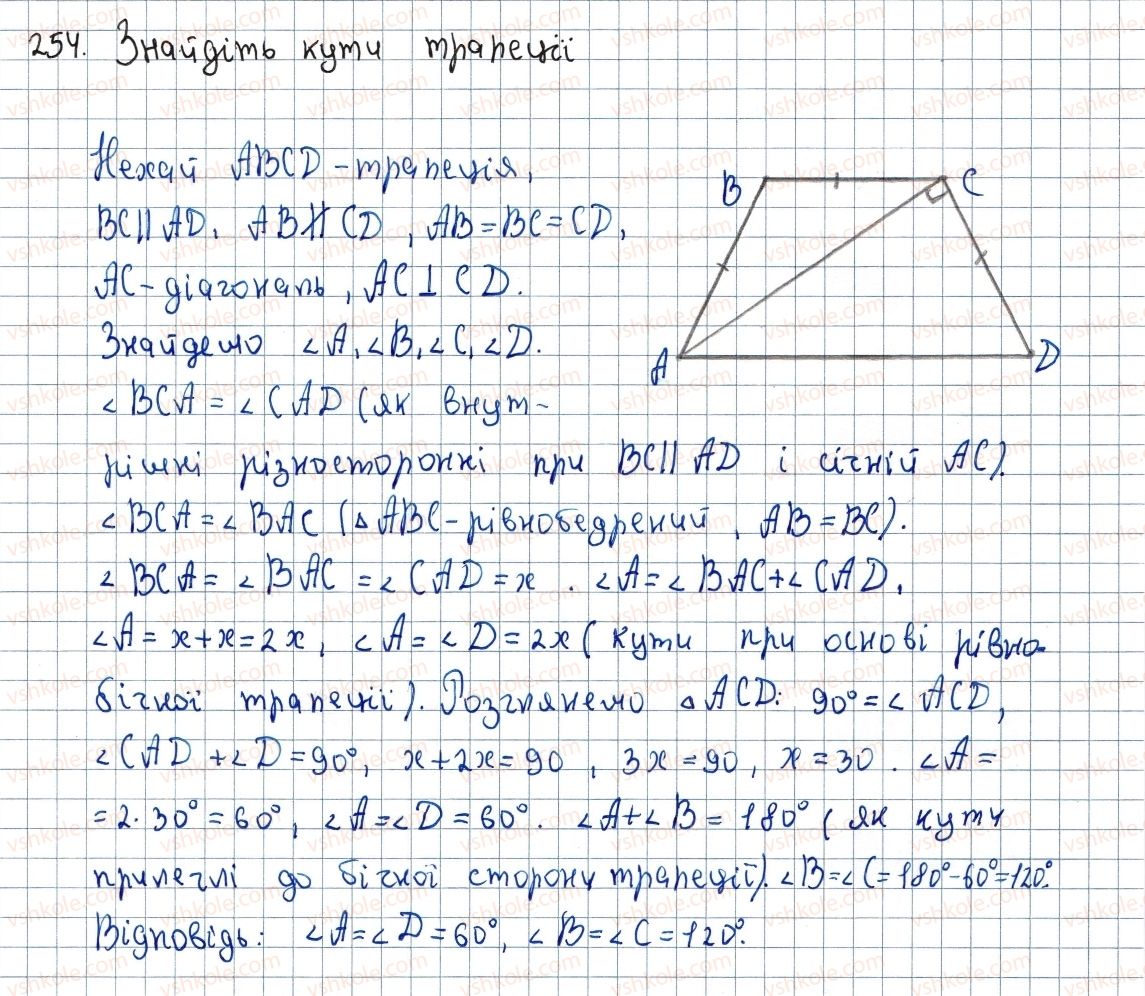 254. Знайдіть кути трапеції
Нехай ABCD - трапеція,
BC || AD, AB ∦ CD, AB = BC = CD,
AC - діагональ, AC ⊥ CD.
Знайдемо ∠A, ∠B, ∠C, ∠D.
∠BCA = ∠CAD (як внут-
рішні різносторонні при BC || AD і січній AC).
∠BCA = ∠BAC (△ABC - рівнобедрений, AB = BC).
∠BCA = ∠BAC = ∠CAD = x. ∠A = ∠BAC + ∠CAD,
∠A = x + x = 2x, ∠A = ∠D = 2x (кути при основі рівно-
бічної трапеції). Розглянемо △ACD: 90° = ∠ACD,
∠CAD + ∠D = 90°, x + 2x = 90, 3x = 90, x = 30. ∠A =
= 2 · 30° = 60°, ∠A = ∠D = 60°. ∠A + ∠B = 180° (як кути
прилеглі до бічної сторони трапеції). ∠B = ∠C = 180° - 60° = 120°.
Відповідь: ∠A = ∠D = 60°, ∠B = ∠C = 120°.
B
C
A
D
vshkole.com